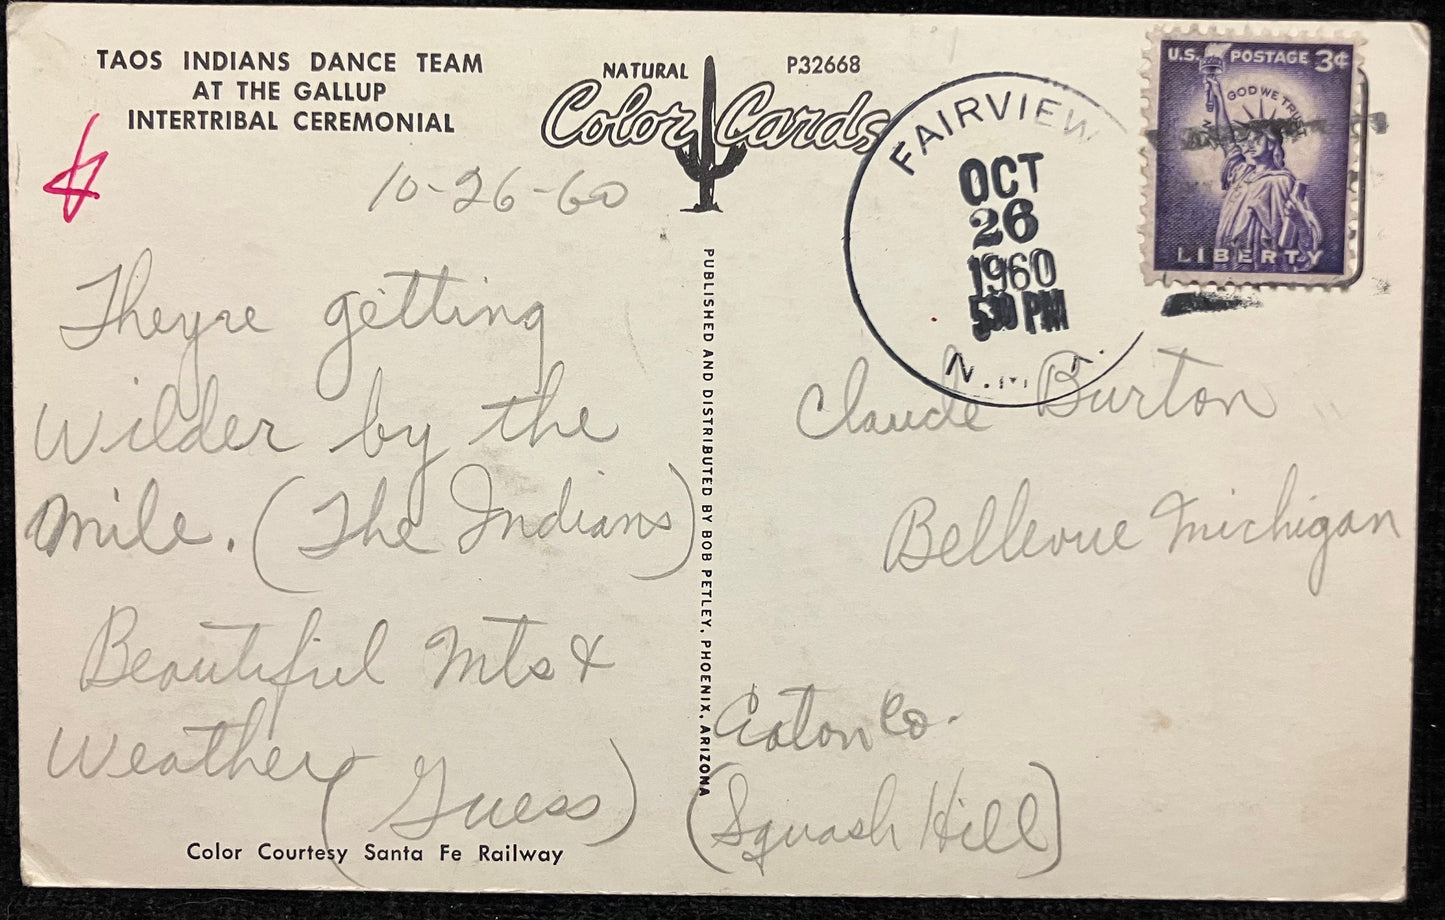 TAOS INDIANS DANCE TEAM
AT THE GALLUP
INTERTRIBAL CEREMONIAL
NATURAL
Color Cards
P32668
FAIRVIEW
OCT
26
1960
530 PM
N.M.
U.S. POSTAGE 3¢
IN GOD WE TRUST
LIBERTY
10-26-60
Theyre getting
wilder by the
mile. (The Indians)
Beautiful Mts &
Weather
(Guess)
Color Courtesy Santa Fe Railway
PUBLISHED AND DISTRIBUTED BY BOB PETLEY, PHOENIX, ARIZONA
Claude Burton
Bellevue Michigan
Eaton Co.
(Squash Hill)